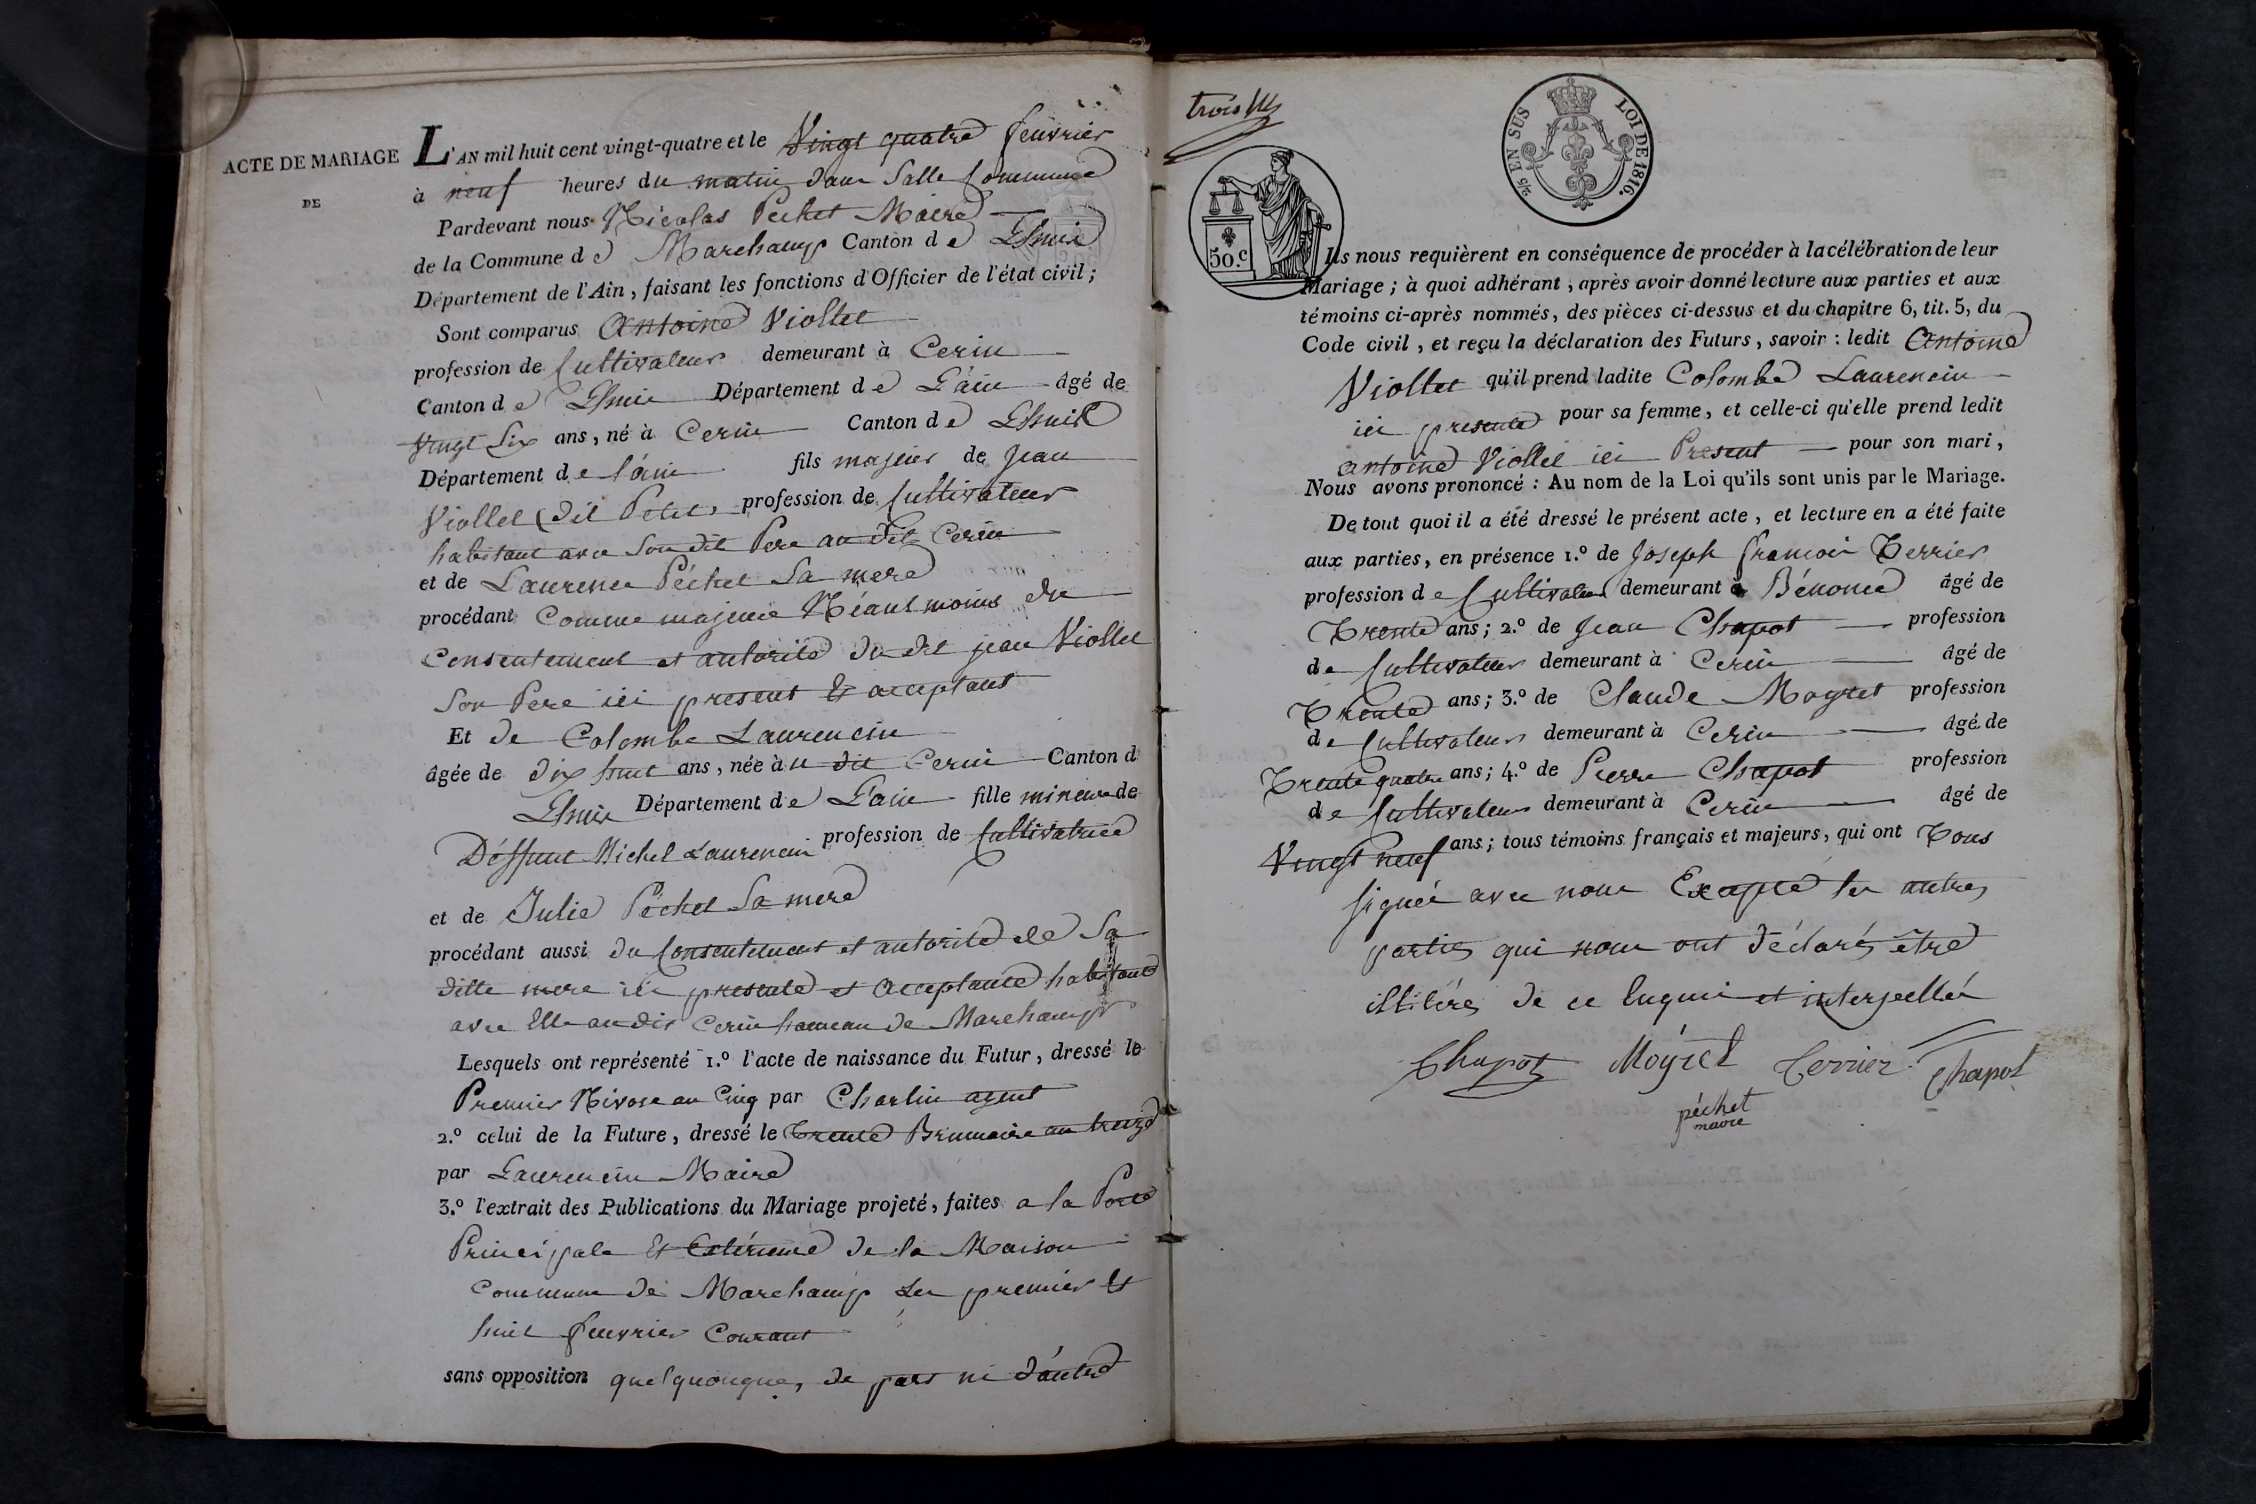 ACTE DE MARIAGE
DE
L'AN mil huit cent vingt-quatre et le Vingt quatre feuvrier
à neuf heures du matin dans Salle Commune
Pardevant nous Nicolas Pechet Maire
de la Commune de Marchamp Canton de Lhuis
Département de l'Ain, faisant les fonctions d'Officier de l'état civil;
Sont comparus Antoine Viollet
profession de Cultivateur demeurant à Cerin
Canton de Lhuis Département de L'ain âgé de
Vingt Six ans, né à Cerin Canton de Lhuis
Département de l'ain fils majeur de Jean
Viollet (dit Petit, profession de Cultivateur
habitant avec Son dit Pere au dit Cerin
et de Laurence Péchet Sa mere
procédant Comme majeur Néantmoins du
Consentement et autorité du dit jean Viollet
Son Pere ici present & acceptant
Et de Colombe Laurencin
âgée de dix huit ans, née à u dit Cerin Canton d
Lhuis Département de L'ain fille mineure de
Déffunt Michel Laurencin profession de Cultivatrice
et de Julie Péchet Sa mere
procédant aussi du Consentement et autorité de Sa
ditte mere ici presente et acceptante habitante
avec Elle audit Cerin hameau de Marchamp
Lesquels ont représenté 1.º l'acte de naissance du Futur, dressé le
Premier Nivose an Cinq par Charlin agent
2.º celui de la Future, dressé le Trente Brumaire an treize
par Laurencin Maire
3.º l'extrait des Publications du Mariage projeté, faites a la Porte
Principale Et Extérieure de la Maison
Commune de Marchamp Les premier &
huit feuvrier Courant
sans opposition quelquonque, de part ni d'autre
trois
2/5 EN SUS LOI DE 1816.
50.c
Ils nous requièrent en conséquence de procéder à la célébration de leur
Mariage; à quoi adhérant, après avoir donné lecture aux parties et aux
témoins ci-après nommés, des pièces ci-dessus et du chapitre 6, tit. 5, du
Code civil, et reçu la déclaration des Futurs, savoir: ledit Antoine
Viollet qu'il prend ladite Colombe Laurencin
ici presente pour sa femme, et celle-ci qu'elle prend ledit
antoine Viollet ici Present pour son mari,
Nous avons prononcé: Au nom de la Loi qu'ils sont unis par le Mariage.
De tout quoi il a été dressé le présent acte, et lecture en a été faite
aux parties, en présence 1.º de Joseph françois Terrier
profession de Cultivateur demeurant à Bénonce âgé de
Trente ans; 2.º de Jean Chapot profession
de Cultivateur demeurant à Cerin âgé de
Trente ans; 3.º de Claude Moyret profession
de Cultivateur demeurant à Cerin âgé de
Trente quatre ans; 4.º de Pierre Chapot profession
de Cultivateur demeurant à Cerin âgé de
Vingt neuf ans; tous témoins français et majeurs, qui ont Tous
signés avec nous Excepté les autres
parties qui nous ont déclarés être
illitérés de ce Enquis et interpellés
Chapot Moyret Terrier Chapot
péchet
maire